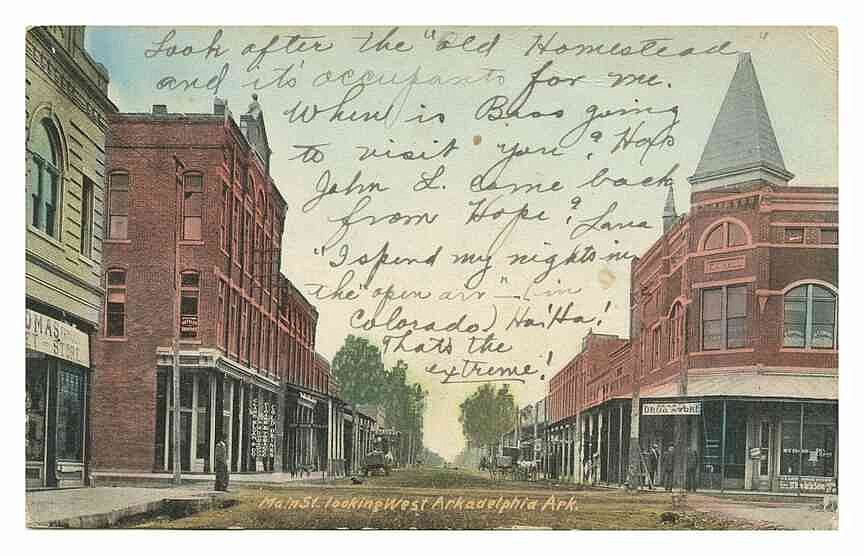 Look after the "old Homestead"
and it's occupants for me.
When is Bass going
to visit you? Has
John L. come back
from Hope? Lana
"I spend my nights in
the "open air" - (in
Colorado) Ha! Ha!
Thats the
extreme!
OMAS
DRUG STORE
Main St. looking West Arkadelphia Ark.